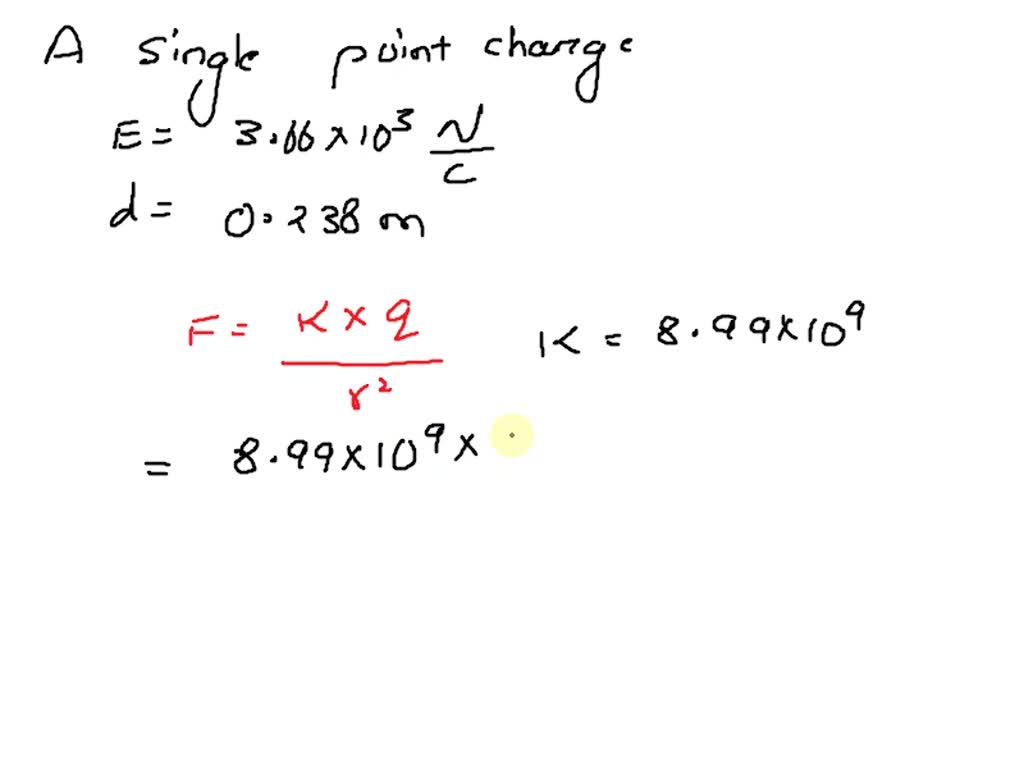 A single point charge
E = 3.66 × 10³ N/C
d = 0.238 m
F = K × q / r² K = 8.99 × 10⁹
= 8.99 × 10⁹ ×